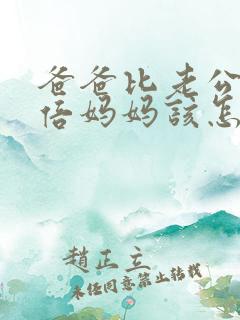 爸爸比老公
倍妈妈該怎
趙正立
未经同意禁止转载